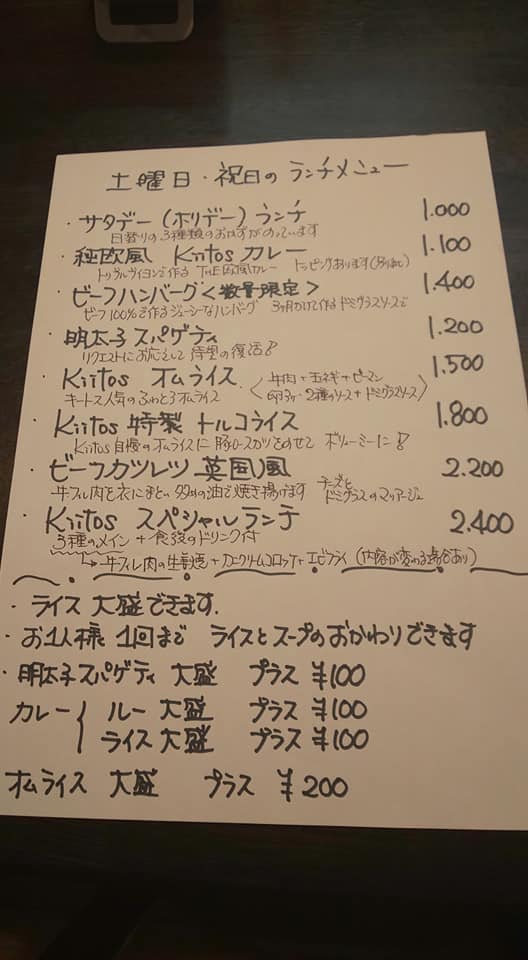 土曜日・祝日の ランチメニュー
・サタデー(ホリデー)ランチ 1.000
日替りの3種類のおかずがのっています
・純欧風 Kiitos カレー 1.100
トリプルブイヨンで作る THE欧風カレー トッピングあります(別紙)
・ビーフハンバーグ<数量限定> 1.400
ビーフ100%で作るジューシーなハンバーグ 3ヶ月かけて作るドミグラスソースで
・明太子スパゲティ 1.200
リクエストにお応えして 待望の復活!
・Kiitos オムライス 〈牛肉+玉ネギ+ピーマン 1.500
キートス人気のふわとろオムライス 卵3ヶ・2種のソース+ドミグラスソース〉
・Kiitos 特製 トルコライス 1.800
Kiitos自慢のオムライスに 豚ロースカツをのせて ボリューミーに!
・ビーフカツレツ 英国風 2.200
牛フィレ肉を衣にまとい 多めの油で焼き揚げます チーズとドミグラスのマリアージュ
・Kiitos スペシャルランチ 2.400
3種のメイン + 食後のドリンク付
→牛フィレ肉の生姜焼+カニクリームコロッケ+エビフライ (内容が変わる場合あり)
・ライス 大盛できます.
・お1人様 1回まで ライスとスープのおかわりできます
・明太子スパゲティ 大盛 プラス ¥100
カレー{ルー 大盛 プラス ¥100
ライス 大盛 プラス ¥100
オムライス 大盛 プラス ¥200